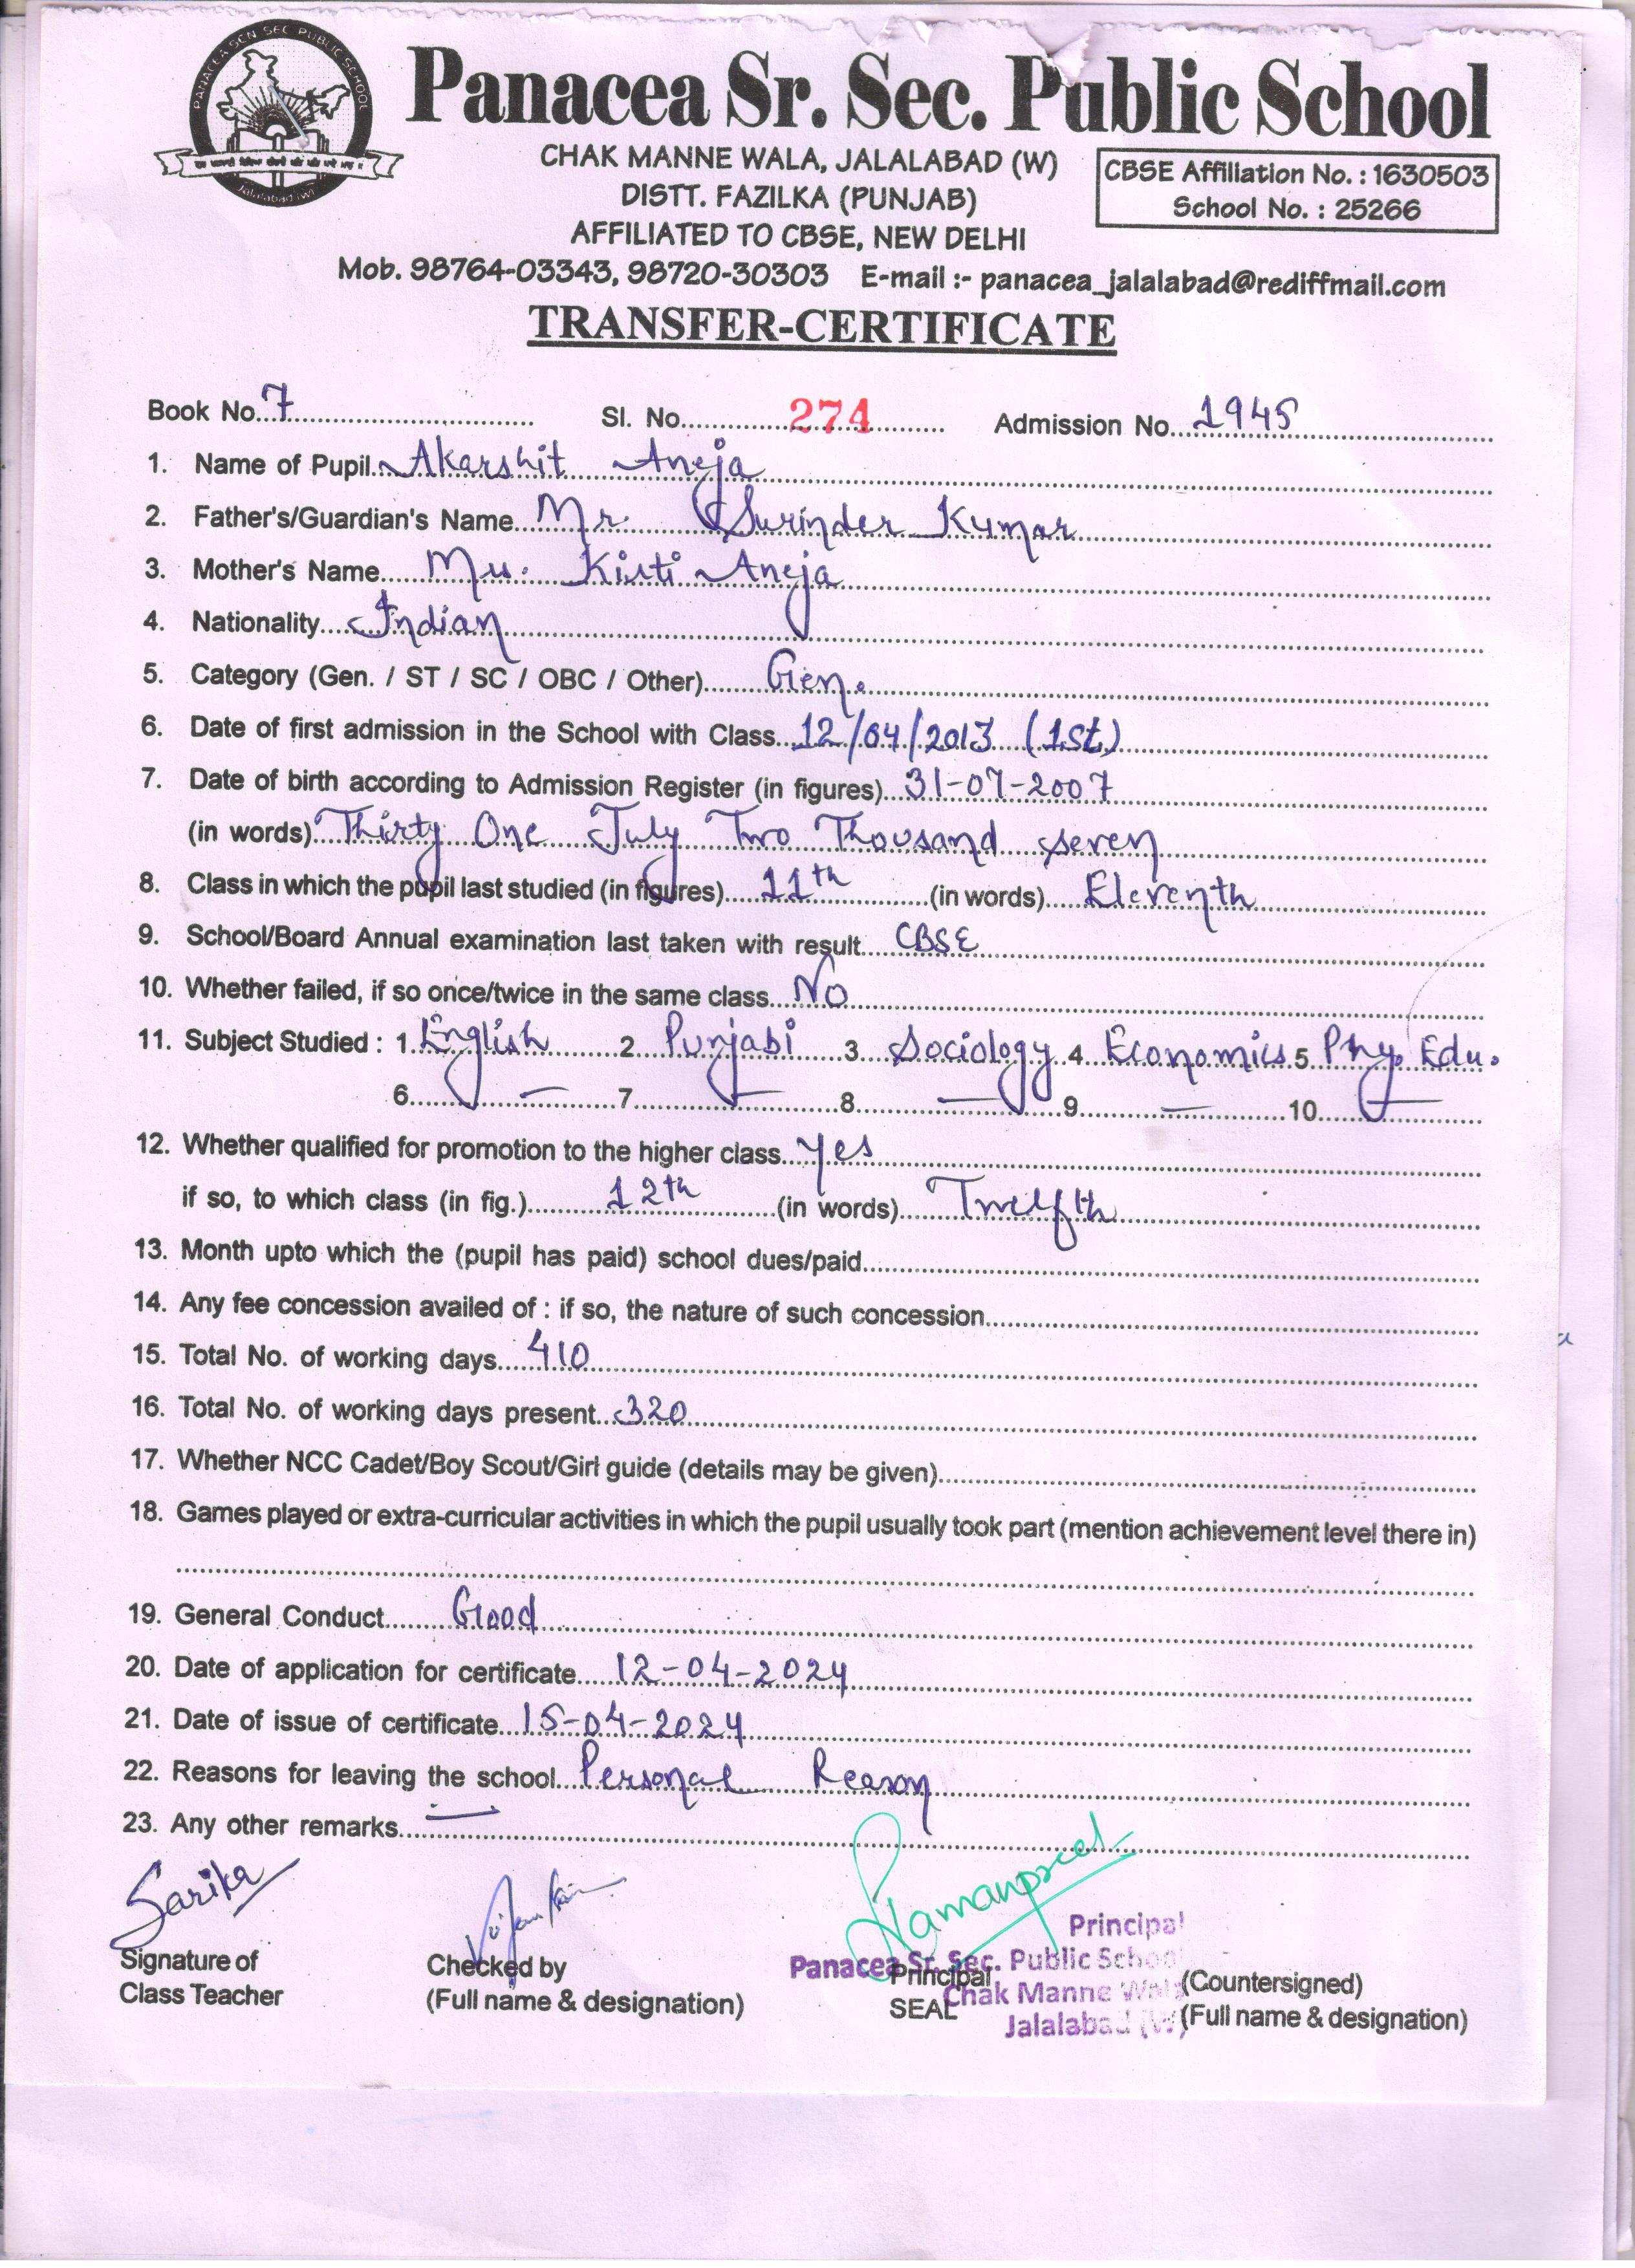 PANACEA SCN SEC PUBLIC SCHOOL
Jalalabad (W)
Panacea Sr. Sec. Public School
CHAK MANNE WALA, JALALABAD (W)
DISTT. FAZILKA (PUNJAB)
AFFILIATED TO CBSE, NEW DELHI
CBSE Affiliation No. : 1630503
School No. : 25266
Mob. 98764-03343, 98720-30303 E-mail :- panacea_jalalabad@rediffmail.com
TRANSFER-CERTIFICATE
Book No. 7 Sl. No. 274 Admission No. 1945
1. Name of Pupil Akarshit Aneja
2. Father's/Guardian's Name Mr. Surinder Kumar
3. Mother's Name Mrs. Kirti Aneja
4. Nationality Indian
5. Category (Gen. / ST / SC / OBC / Other) Gen.
6. Date of first admission in the School with Class 12/04/2013 (1st)
7. Date of birth according to Admission Register (in figures) 31-07-2007
(in words) Thirty One July Two Thousand seven
8. Class in which the pupil last studied (in figures) 11th (in words) Eleventh
9. School/Board Annual examination last taken with result CBSE
10. Whether failed, if so once/twice in the same class No
11. Subject Studied : 1 English 2 Punjabi 3 Sociology 4 Economics 5 Phy. Edu.
6 — 7 — 8 — 9 — 10 —
12. Whether qualified for promotion to the higher class yes
if so, to which class (in fig.) 12th (in words) Twelfth
13. Month upto which the (pupil has paid) school dues/paid
14. Any fee concession availed of : if so, the nature of such concession
15. Total No. of working days 410
16. Total No. of working days present 320
17. Whether NCC Cadet/Boy Scout/Girl guide (details may be given)
18. Games played or extra-curricular activities in which the pupil usually took part (mention achievement level there in)
19. General Conduct Good
20. Date of application for certificate 12-04-2024
21. Date of issue of certificate 15-04-2024
22. Reasons for leaving the school Personal Reason
23. Any other remarks —
Sarika
Ramanpreet
Signature of
Class Teacher
Checked by
(Full name & designation)
Principal
SEAL
Principal
Panacea Sr. Sec. Public School
Chak Manne Wala
Jalalabad (W)
(Countersigned)
(Full name & designation)